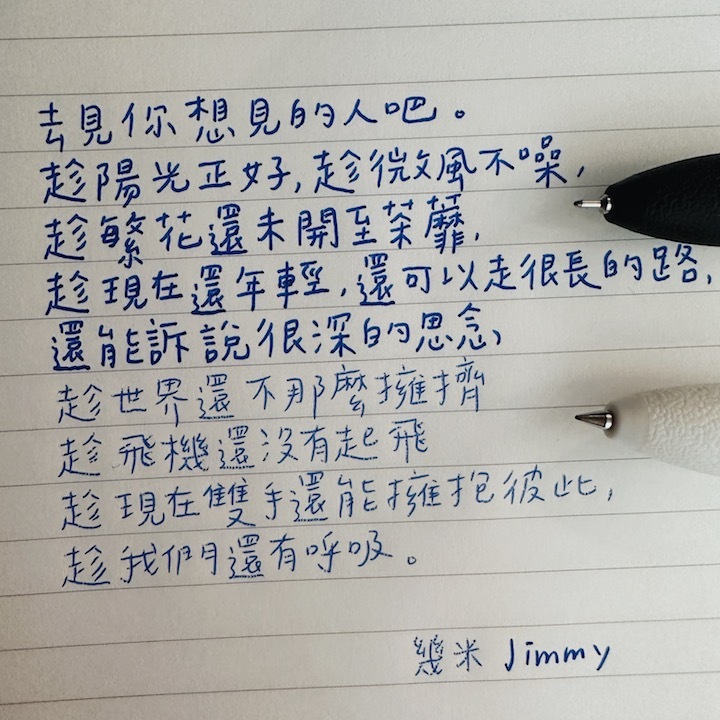 去見你想見的人吧。
趁陽光正好,趁微風不噪,
趁繁花還未開至荼蘼,
趁現在還年輕,還可以走很長的路,
還能訴說很深的思念,
趁世界還不那麼擁擠
趁飛機還沒有起飛
趁現在雙手還能擁抱彼此,
趁我們還有呼吸。
幾米 Jimmy